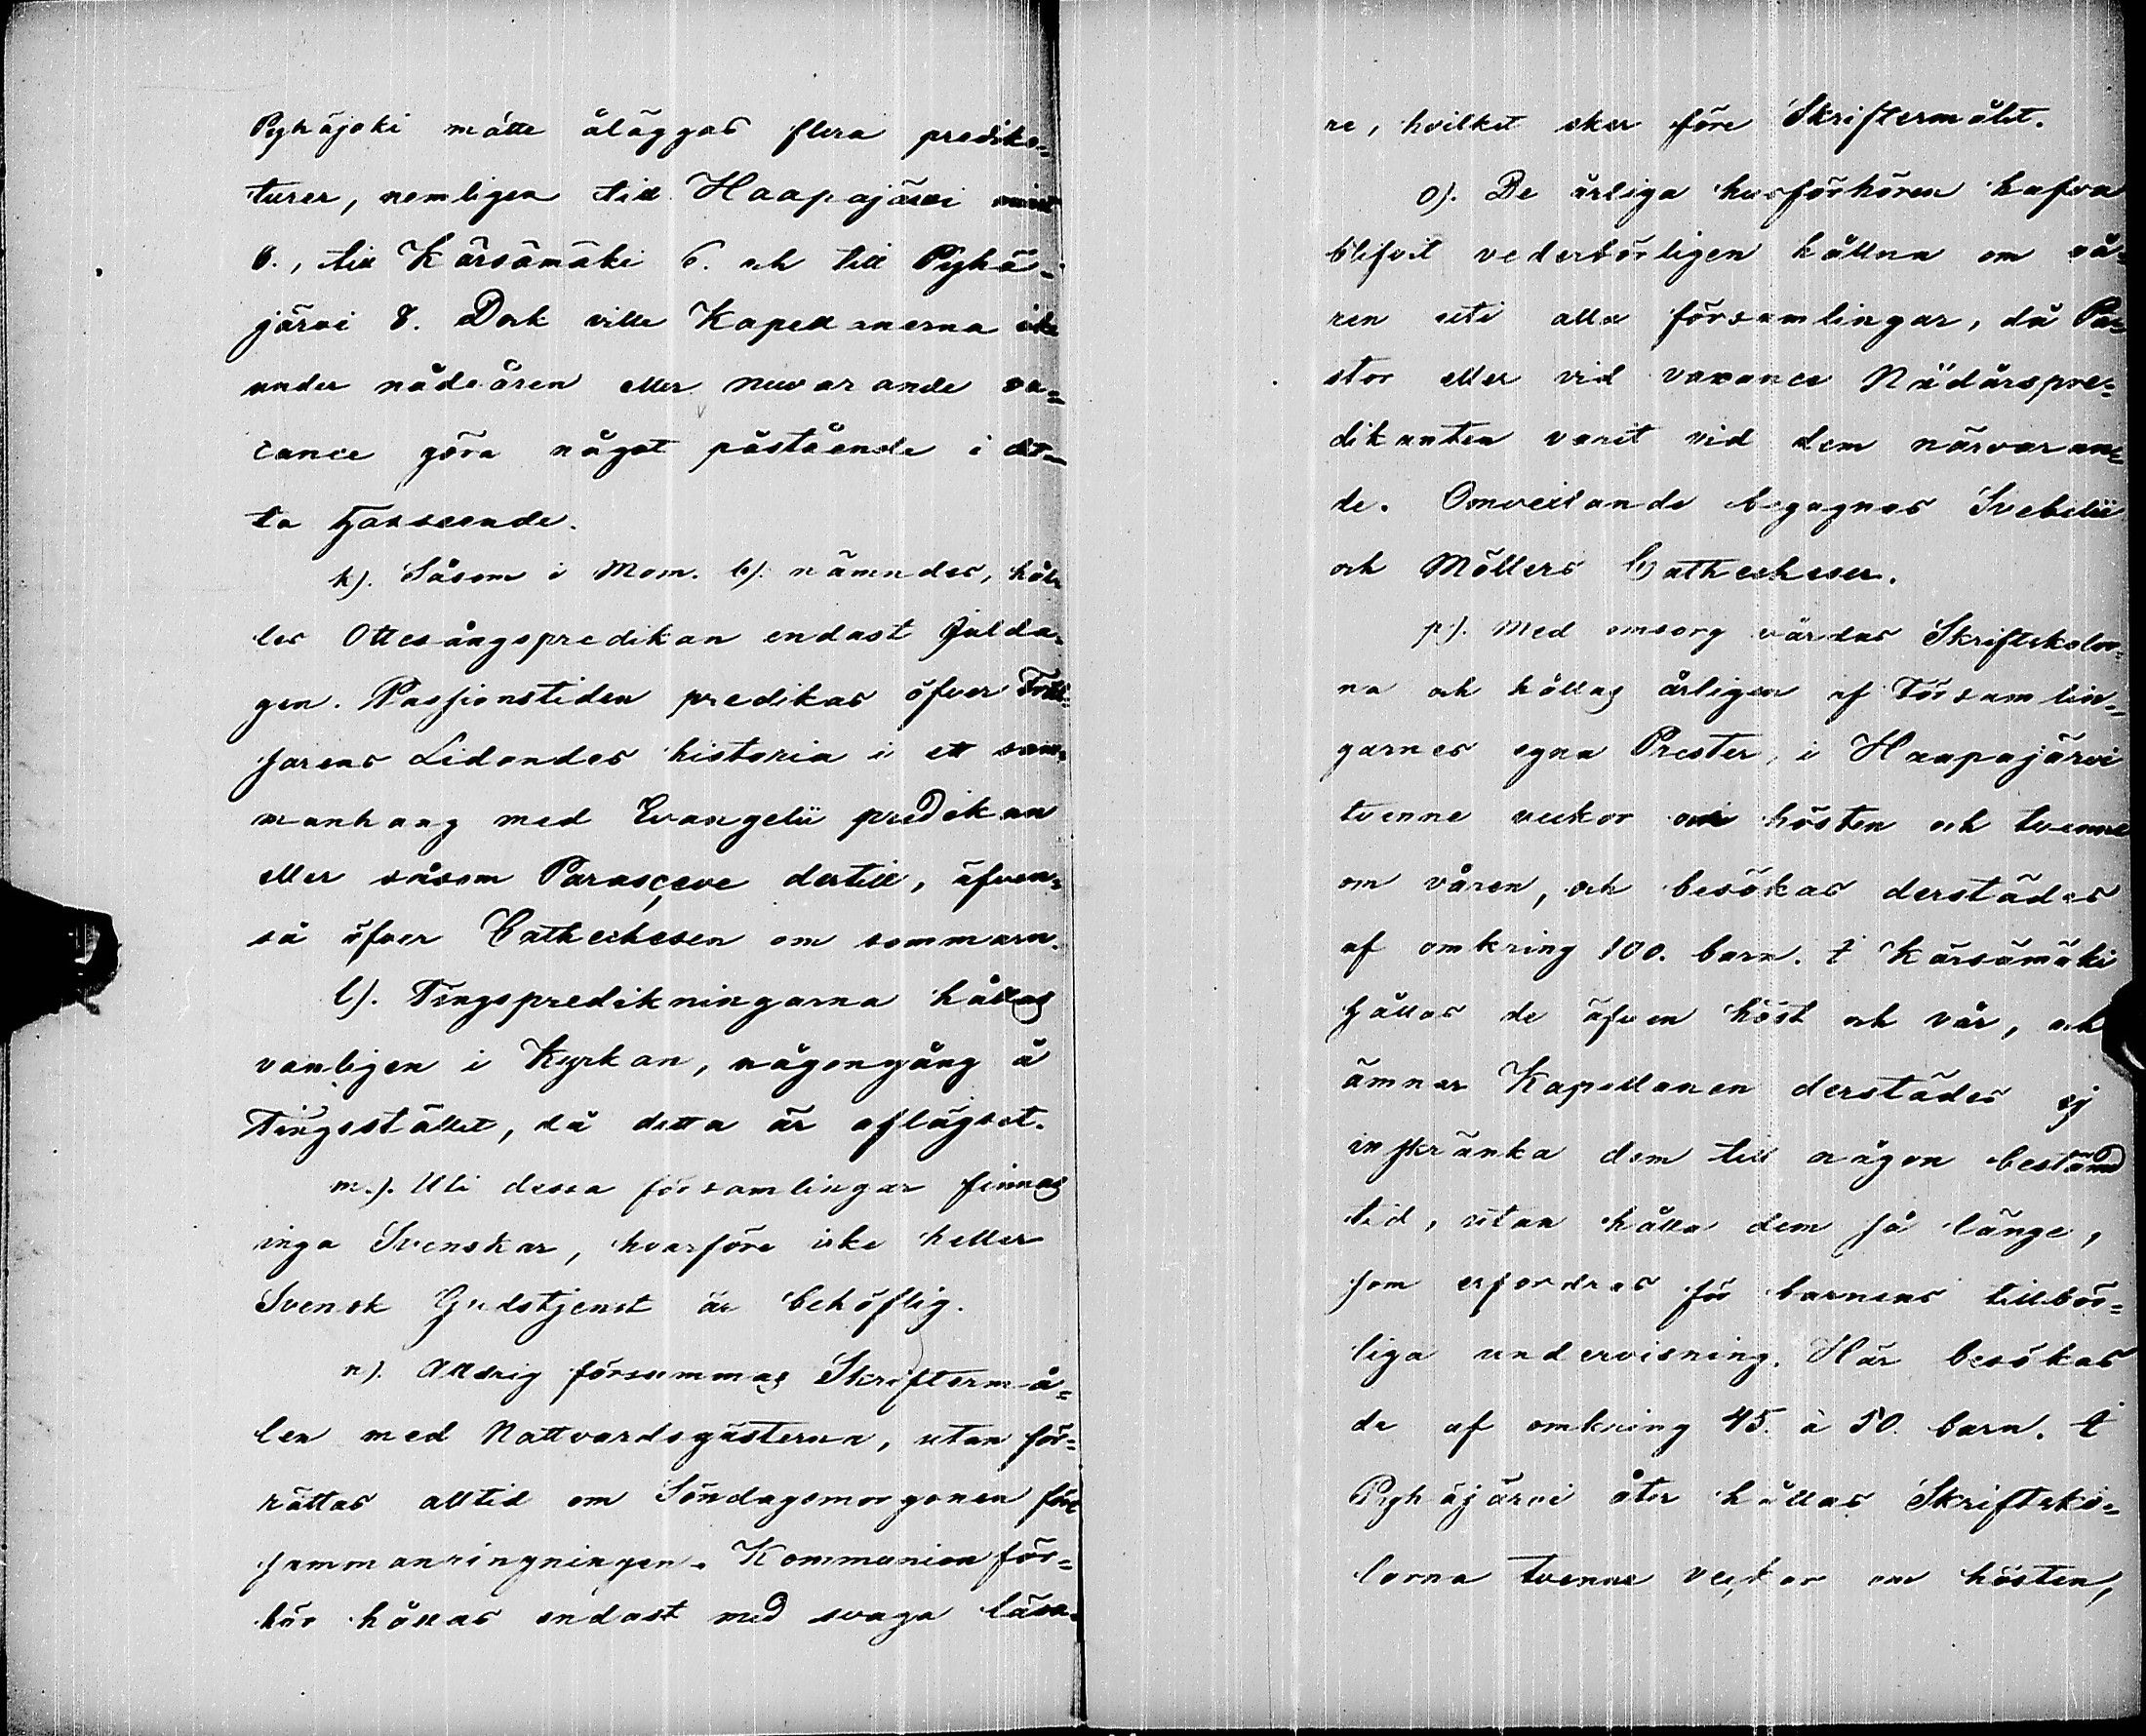 Pyhäjoki måtte åläggas flera prediko=
turer, nemligen till Haapajärvi minst
6., till Kärsämäki 6. och till Pyhä=
järvi 8. Dock ville Kapellanerna icke
under nådeåren eller nuvarande va=
cance göra något påstående i det=
ta hänseende.
k). Såsom i Mom. b). nämndes, hål=
les Ottesångspredikan endast Julda=
gen. Passionstiden predikas öfver Fräl=
sarens Lidandes historia i ett sam=
manhang med Evangelii predikan
eller såsom Parasceve dertill, äfven=
så öfver Cathechesen om sommarn.
l). Tingspredikningarna hållas
vanligen i Kyrkan, någongång å
Tingsstället, då detta är aflägset.
m.). Uti dessa församlingar finnas
inga Svenskar, hvarföre icke heller
Svensk Gudstjenst är behöflig.
n). Alldrig försummas Skriftermå=
len med Nattvardsgästerna, utan för=
rättas alltid om Söndagsmorgonen före
sammanringningen. Kommunion för=
hör hållas endast med svaga läsa=
re, hvilket sker före Skriftermålet.
o). De årliga husförhören hafva
blifvit vederbörligen hållna om vå=
ren uti alla församlingar, då Pa=
stor eller vid vacance Nådårspre=
dikanten varit vid dem närvaran=
de. Omvexlande begagnas Svebelii
och Möllers Cathecheser.
p). Med omsorg vårdas Skriftskolor=
na och hållas årligen af Församlin=
garnes egna Prester, i Haapajärvi
tvenne veckor om hösten och tvenne
om våren, och besökas derstädes
af omkring 100. barn. I Kärsämäki
hållas de äfven höst och vår, och
ämnar Kapellanen derstädes ej
inskränka dem till någon bestämd
tid, utan hålla dem så länge,
som erfordras för barnens tillbör=
liga undervisning. Här besökas
de af omkring 45. à 50. barn. I
Pyhäjärvi åter hållas Skriftsko=
lorna tvenne veckor om hösten,